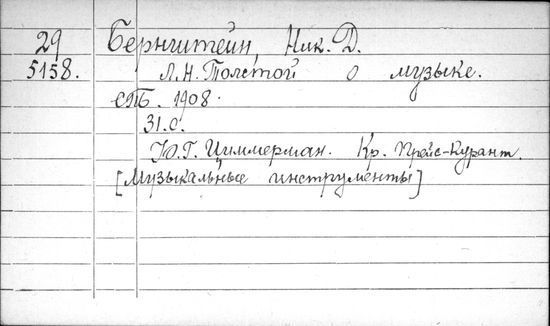 29 Бернштейн, Ник. Д.
5158. Л.Н. Толстой о музыке.
СПБ. 1908.
31.0.
Ю.Г. Циммерман. Кр. Прейс-Курант.
[Музыкальные инструменты]